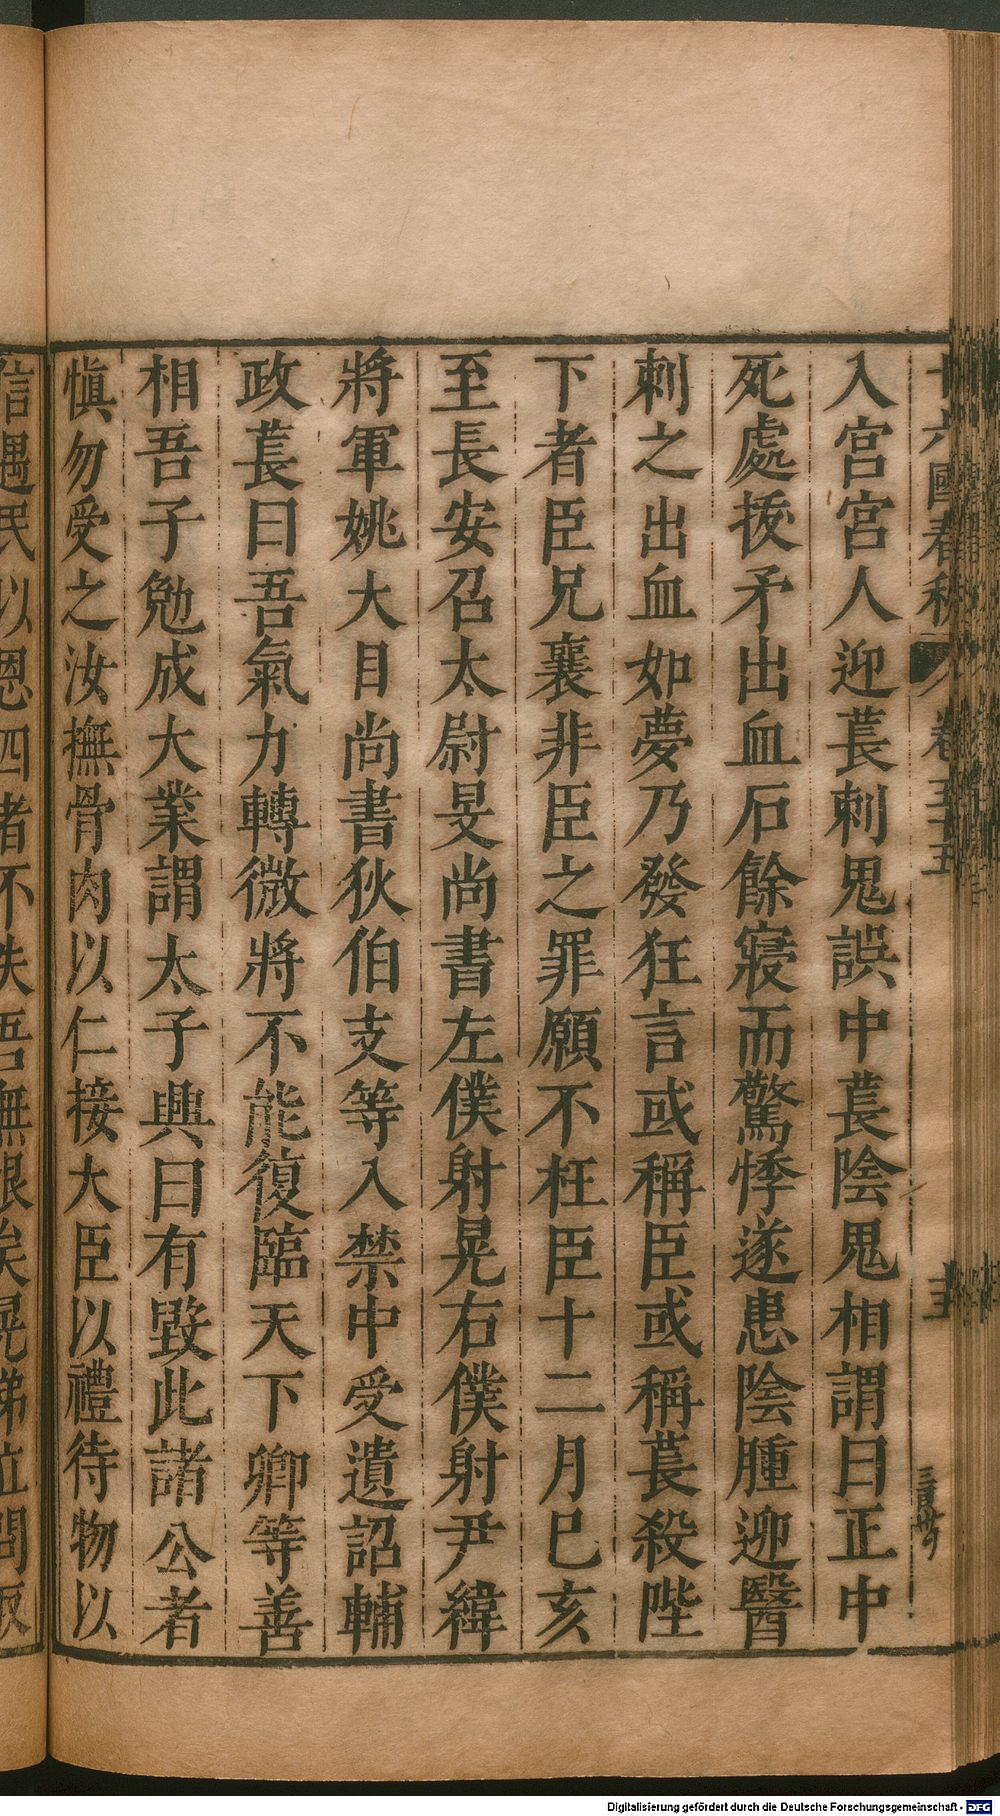 十六國春秋 卷五十五
入宮宮人迎萇刺鬼誤中萇陰鬼相謂曰正中
死處拔矛出血石餘寢而驚悸遂患陰腫迎醫
刺之出血如夢乃發狂言或稱臣或稱萇殺陛
下者臣兄襄非臣之罪願不枉臣十二月巳亥
至長安召太尉旻尚書左僕射晃右僕射尹緯
將軍姚大目尚書狄伯支等入禁中受遺詔輔
政萇曰吾氣力轉微將不能復臨天下卿等善
相吾子勉成大業謂太子興曰有毀此諸公者
慎勿受之汝撫骨肉以仁接大臣以禮待物以
信遇民以恩四者不失吾無恨矣晃涕泣問取
Digitalisierung gefördert durch die Deutsche Forschungsgemeinschaft - DFG